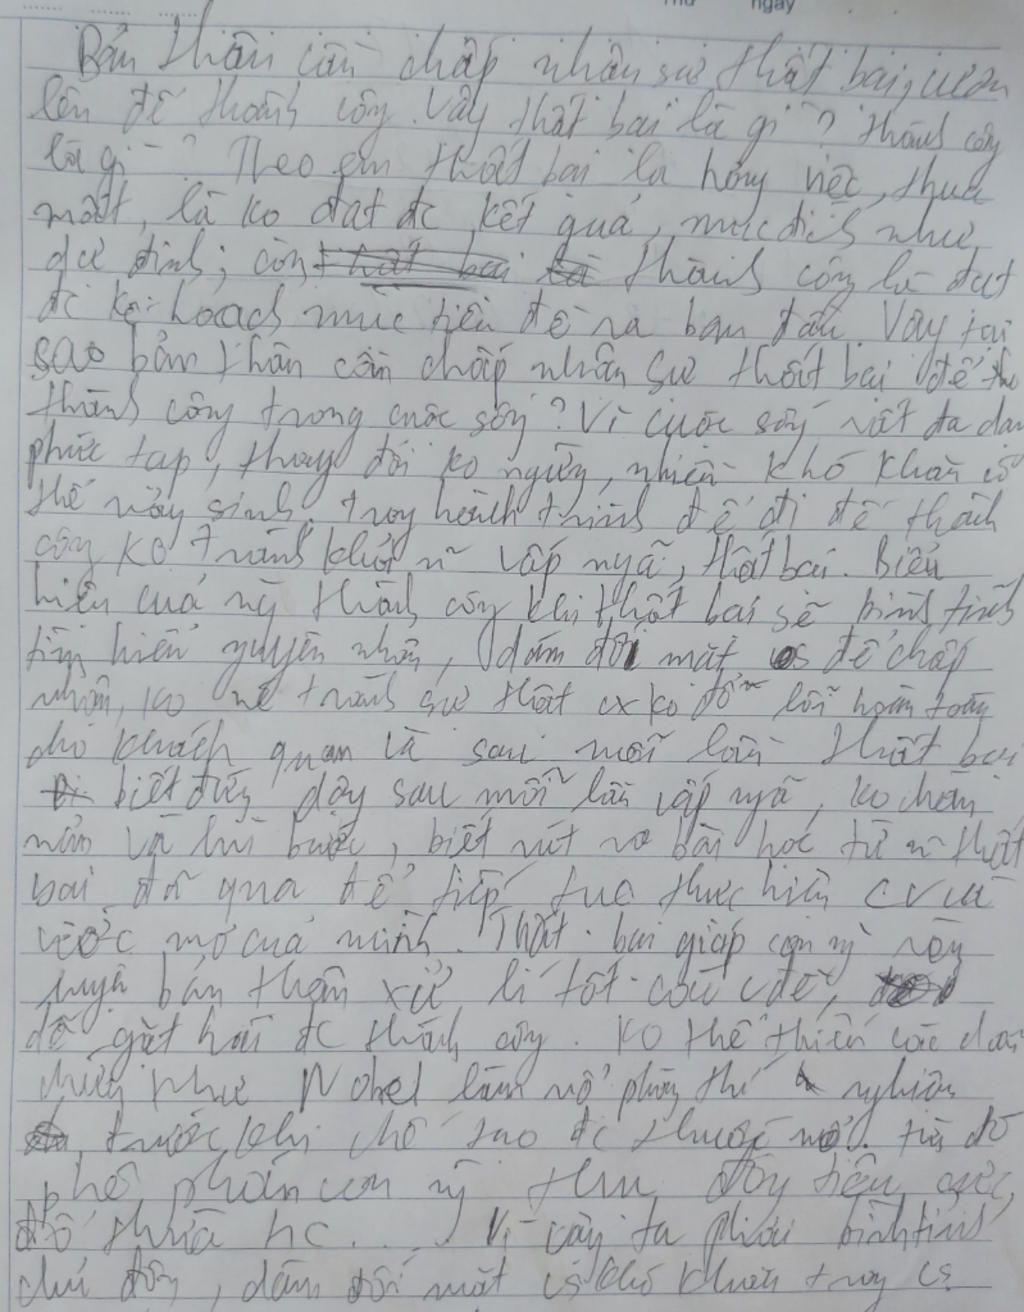 Thứ ngày
Bản thân cần chấp nhận sự thất bại, vươn
lên để thành công. Vậy thất bại là gì? thành công
là gì? Theo em thất bại là hỏng việc, thua
mất, là ko đạt đc kết quả, mục đích như
dự định; còn thất bại là thành công là đạt
đc kế hoạch mục tiêu đề ra ban đầu. Vậy tại
sao bản thân cần chấp nhận sự thất bại để
thành công trong cuộc sống? Vì cuộc sống rất đa dạng
phức tạp, thay đổi ko ngừng, nhiều khó khăn có
thể nảy sinh. trong hành trình để đi đế thành
công ko tránh khỏi n~ vấp ngã, thất bại. Biểu
hiện của ng thành công khi thất bại sẽ bình tĩnh
tìm hiểu nguyên nhân, dám đối mặt để chấp
nhận, ko né tránh sự thật cx ko đổ lỗi hoàn toàn
cho khách quan là sau mỗi lần thất bại
biết đứng dậy sau mỗi lần vấp ngã, ko chán
nản và lùi bước, biết rút ra bài học từ n~ thất
bại đã qua để tiếp tục thực hiện cv và
ước mơ của mình. Thất bại giúp con ng rèn
luyện bản thân xử lí tốt các vđề,
để gặt hái đc thành công. Ko thể thiếu các dẫn
chứng như Nobel làm nổ phòng thí nghiệm
trước khi chế tạo đc thuốc nổ. từ đó
phê phán con ng thu đây tiêu cực,
đổ thừa hc .... Vì vậy ta phải bình tĩnh
chủ động, dám đối mặt vs khó khăn trong cs